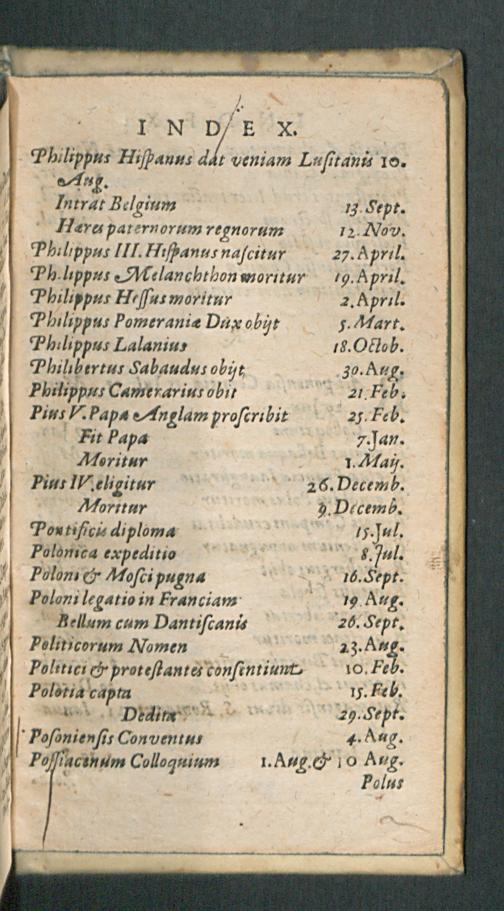 INDEX.
Philippus Hiſpanus dat veniam Luſitanis 10.
Aug.
Intrat Belgium 13. Sept.
Hæres paternorum regnorum 12. Nov.
Philippus III. Hiſpanus naſcitur 27. April.
Philippus Melanchthon moritur 19. April.
Philippus Heſſus moritur 2. April.
Philippus Pomeraniæ Dux obijt 5. Mart.
Philippus Lalanius 18. Octob.
Philibertus Sabaudus obijt 30. Aug.
Philippus Camerarius obit 21. Feb.
Pius V. Papa Anglam proſcribit 25. Feb.
Fit Papa 7. Jan.
Moritur 1. Maij.
Pius IV. eligitur 26. Decemb.
Moritur 9. Decemb.
Pontificis diploma 15. Jul.
Polonica expeditio 8. Jul.
Poloni & Moſci pugna 16. Sept.
Poloni legatio in Franciam 19. Aug.
Bellum cum Dantiſcanis 26. Sept.
Politicorum Nomen 23. Aug.
Politici & proteſtantes conſentiunt 10. Feb.
Polotia capta 15. Feb.
Dedita 29. Sept.
Poſonienſis Conventus 4. Aug.
Poſſiacenum Colloquium 1. Aug. & 10 Aug.
Polus